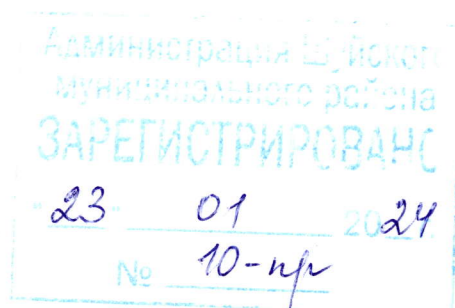 Администрация Шуйского
муниципального района
ЗАРЕГИСТРИРОВАНО
"23" 01 2024
№ 10-пр